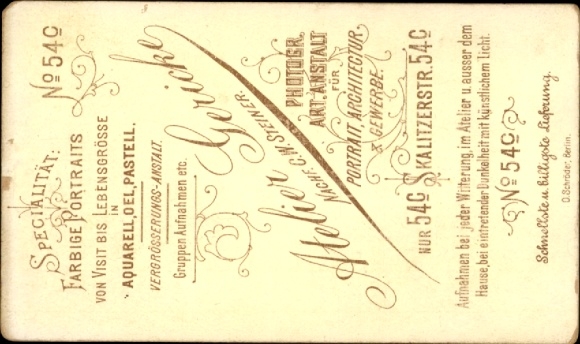 SPECIALITÄT:
FARBIGE PORTRAITS
VON VISIT BIS LEBENSGRÖSSE
IN
AQUARELL, OEL, PASTELL.
VERGRÖSSERUNGS-ANSTALT.
Gruppen Aufnahmen etc.
No 54c
Atelier Gericke
NACHF. C.W. STEINER.
PHOTOGR.
ART. ANSTALT
FÜR
PORTRAIT, ARCHITECTUR
& GEWERBE.
NUR 54c SKALITZERSTR. 54c
Aufnahmen bei jeder Witterung, im Atelier u. ausser dem
Hause, bei eintretender Dunkelheit mit künstlichem Licht.
No 54c
Schnellste u. billigste Lieferung.
O. Schröder, Berlin.